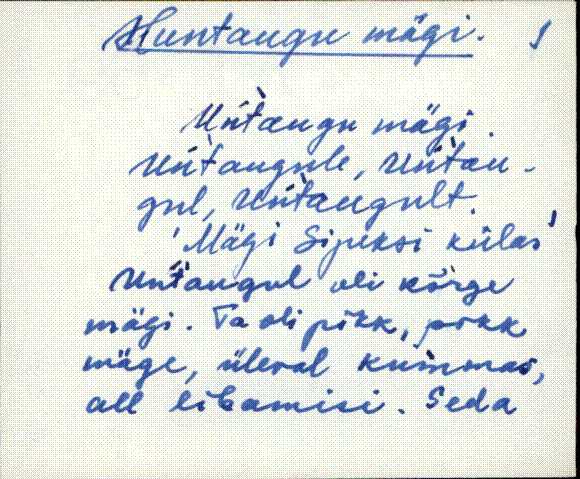 Huntaugu mägi.
Un̄taugu mägi.
Un̄taugule, Un̄tau-
gul, Un̄taugult.
'Mägi Sipeksi külas'
Un̄taugul oli kõrge
mägi. Ta oli pikk,
mäge, üleval kummas,
all libamisi. Seda